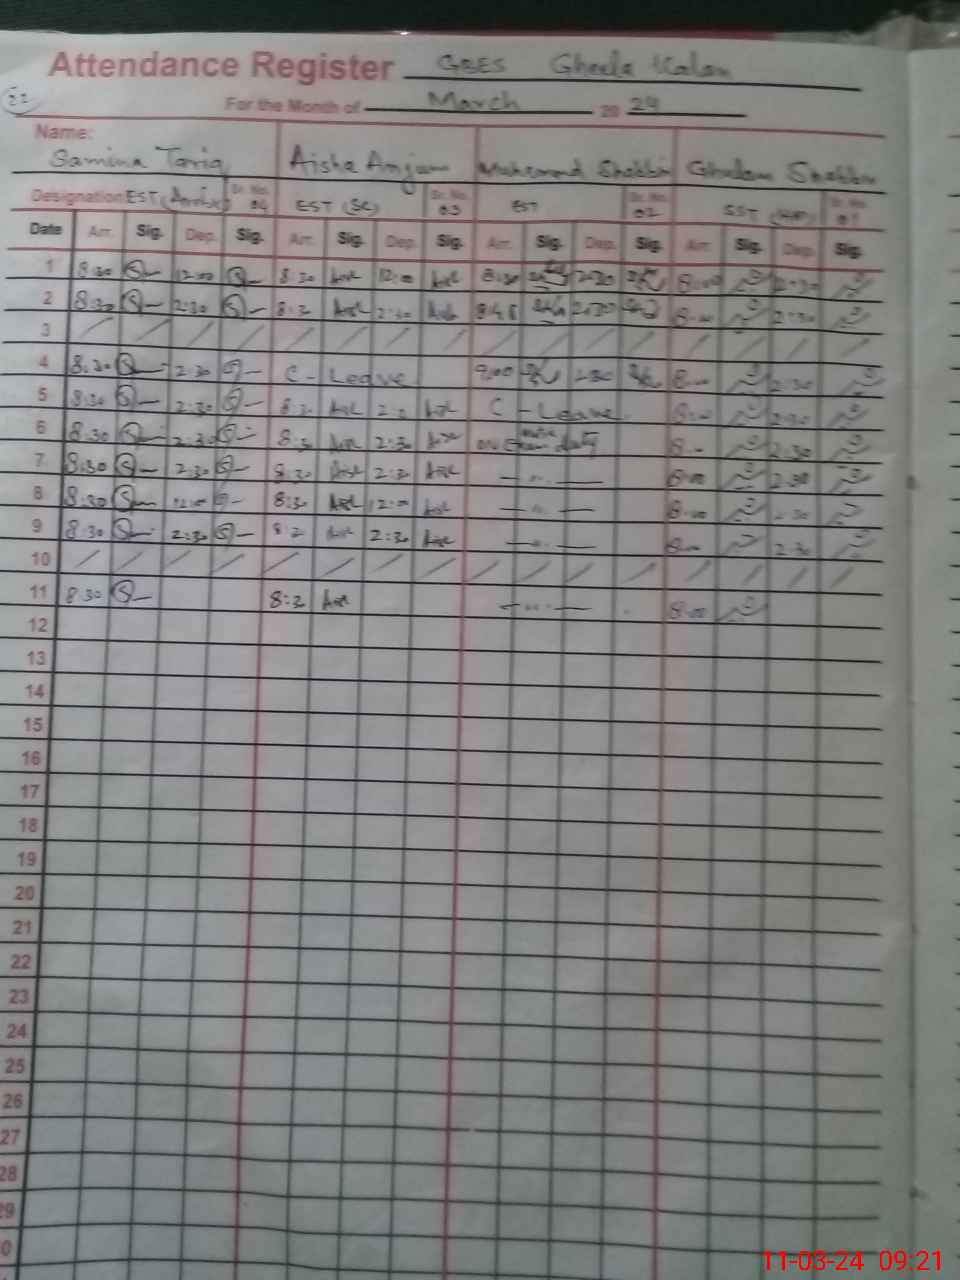 Attendance Register GBES Gheela Kalan
22
For the Month of March 20 24
Name:
Samina Tariq Aisha Amjum Muhammad Shabbir Ghulam Shabbir
Designation EST (Arabic) Sr. No. 04 EST (SC) Sr. No. 03 EST Sr. No. 02 SST Sr. No. 01
Date Arr. Sig. Dep. Sig. Arr. Sig. Dep. Sig. Arr. Sig. Dep. Sig. Arr. Sig. Dep. Sig.
1 8:30 12:00 8:30 12:00 8:30 2:30 8:00 2:30
2 8:30 2:30 8:30 2:30 8:45 2:30 8:00 2:30
3
4 8:30 2:30 C-Leave 9:00 2:30 8:00 2:30
5 8:30 2:30 8:30 2:30 C-Leave 8:00 2:30
6 8:30 2:30 8:30 2:30 on Exam duty 8:00 2:30
7 8:30 2:30 8:30 2:30 8:00 2:30
8 8:30 12:00 8:30 12:00 8:00 2:30
9 8:30 2:30 8:30 2:30 8:00 2:30
10
11 8:30 8:30 8:00
12
13
14
15
16
17
18
19
20
21
22
23
24
25
26
27
28
29
0
11-03-24 09:21